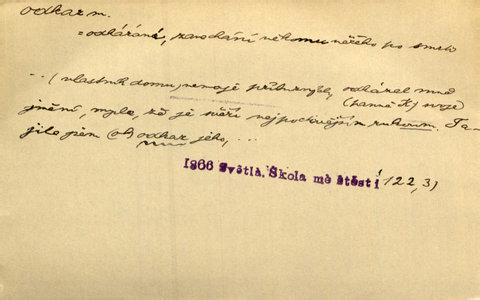 odkaz m.
= odkázání, zanechání někomu něčeho po smrti
... (vlastník domu) nemaje příbuzných, odkázal mně
(panně X) svoje
jmění, mysle, že je svěří nejpoctivějším rukoum. Ta-
jilo jsem odkaz jeho, ...
1866 Světlá. Škola mé štěstí 122, 31